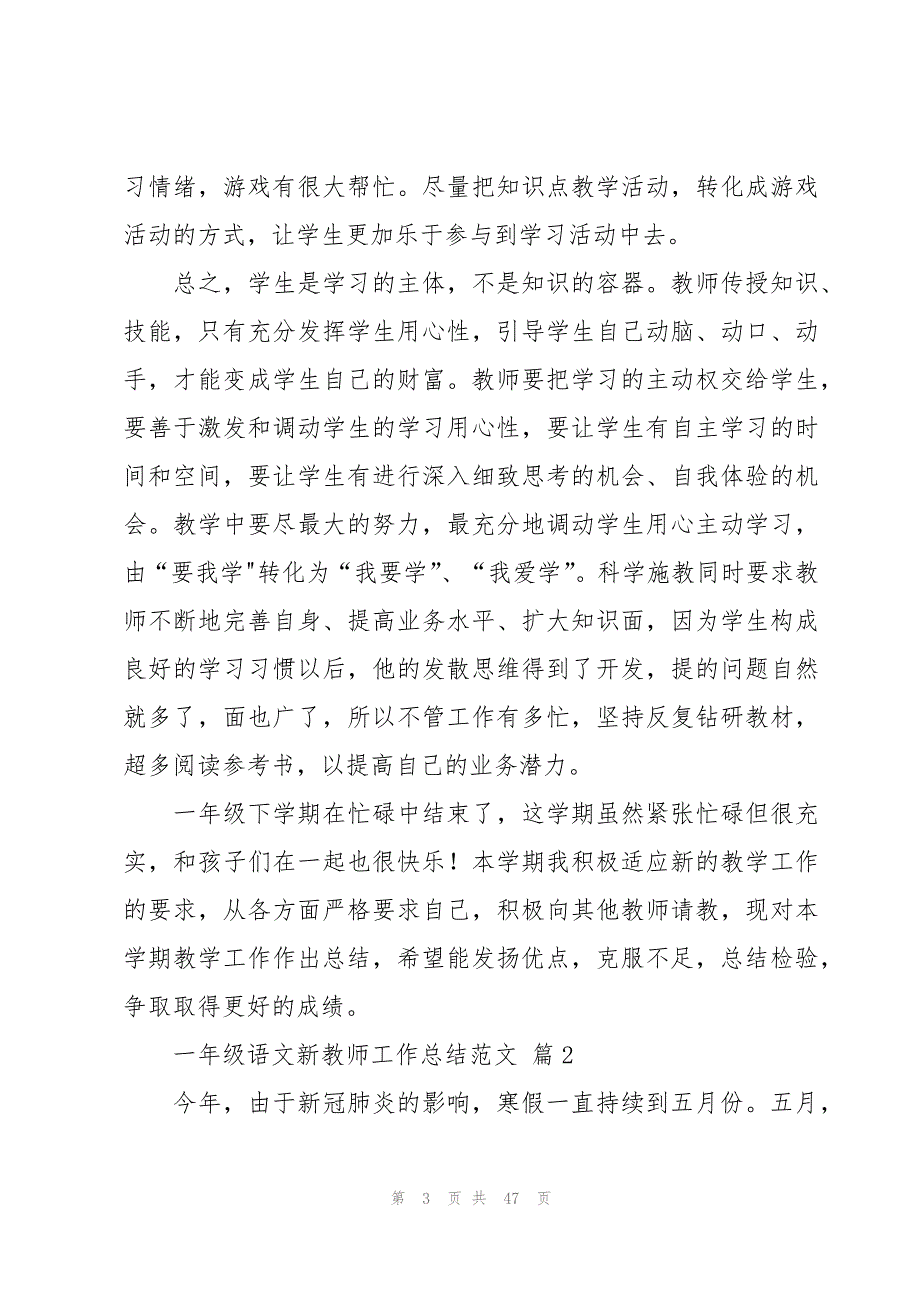 习情绪，游戏有很大帮忙。尽量把知识点教学活动，转化成游戏
活动的方式，让学生更加乐于参与到学习活动中去。
总之，学生是学习的主体，不是知识的容器。教师传授知识、
技能，只有充分发挥学生用心性，引导学生自己动脑、动口、动
手，才能变成学生自己的财富。教师要把学习的主动权交给学生，
要善于激发和调动学生的学习用心性，要让学生有自主学习的时
间和空间，要让学生有进行深入细致思考的机会、自我体验的机
会。教学中要尽最大的努力，最充分地调动学生用心主动学习，
由“要我学"转化为“我要学”、“我爱学”。科学施教同时要求教
师不断地完善自身、提高业务水平、扩大知识面，因为学生构成
良好的学习习惯以后，他的发散思维得到了开发，提的问题自然
就多了，面也广了，所以不管工作有多忙，坚持反复钻研教材，
超多阅读参考书，以提高自己的业务潜力。
一年级下学期在忙碌中结束了，这学期虽然紧张忙碌但很充
实，和孩子们在一起也很快乐！本学期我积极适应新的教学工作
的要求，从各方面严格要求自己，积极向其他教师请教，现对本
学期教学工作作出总结，希望能发扬优点，克服不足，总结检验，
争取取得更好的成绩。
一年级语文新教师工作总结范文 篇2
今年，由于新冠肺炎的影响，寒假一直持续到五月份。五月，
第 3 页 共 47 页